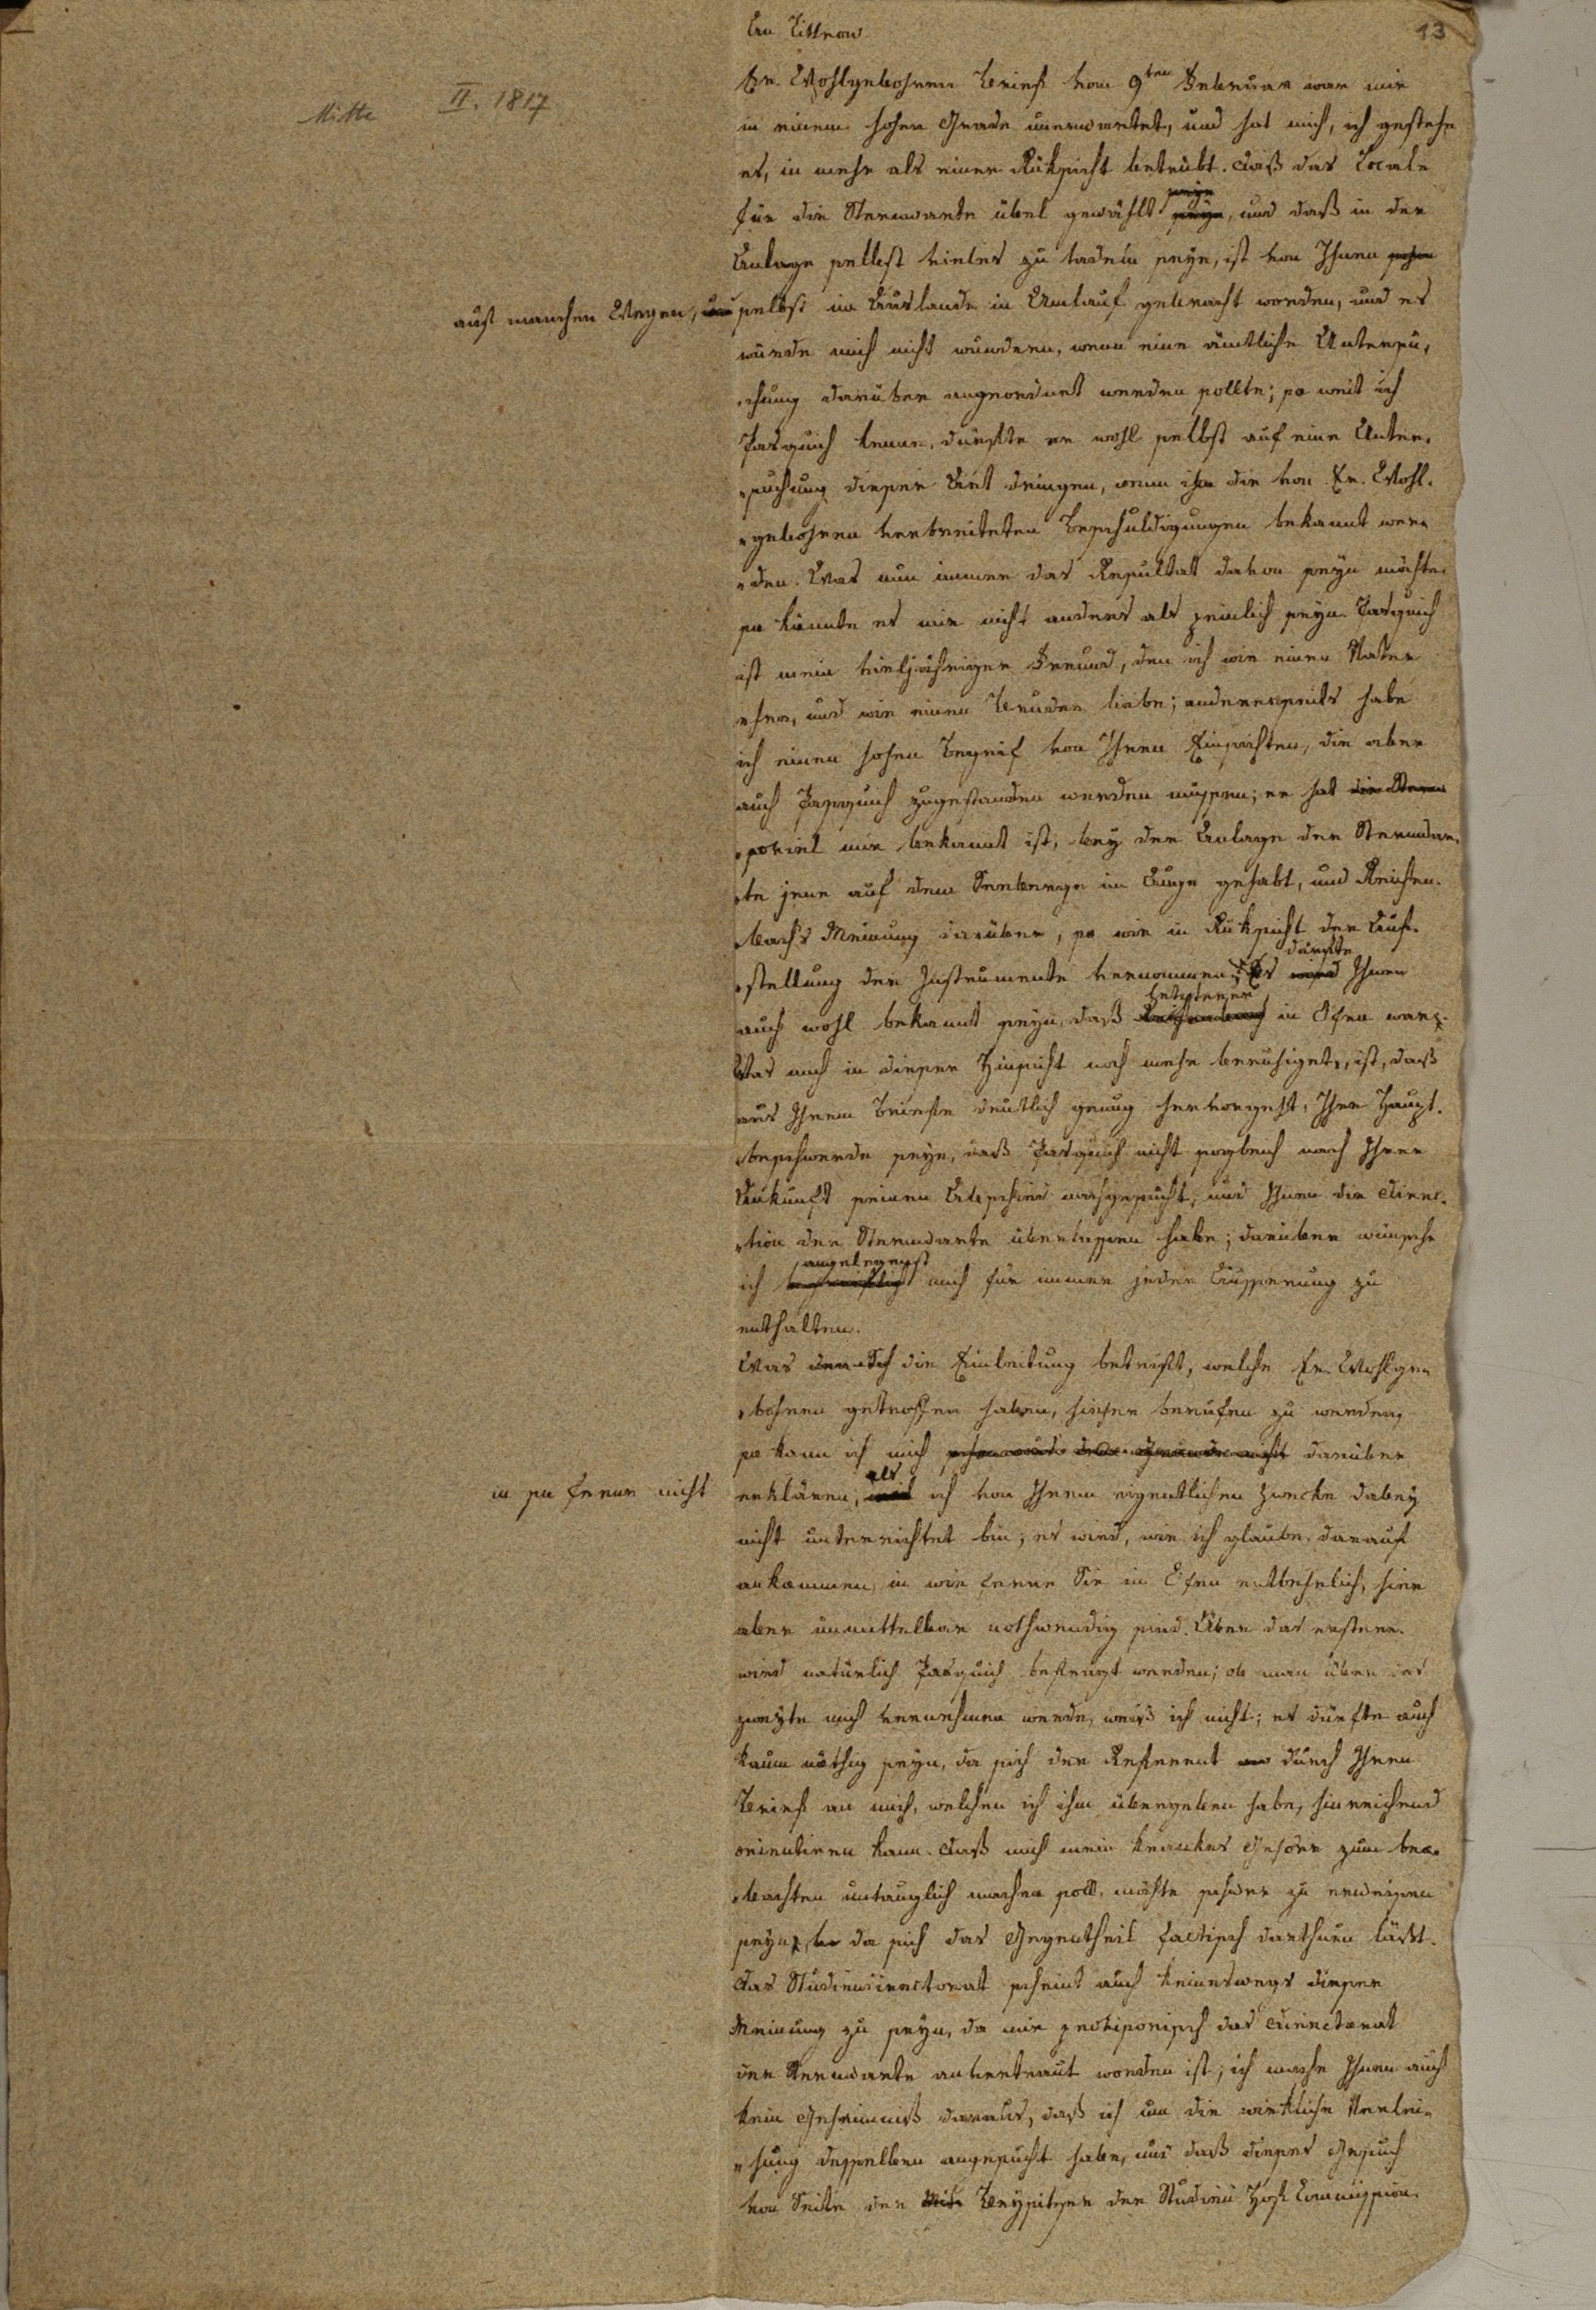 An Littrow
13
Mitte II. 1817
Er. Wohlgebohren Brief vom 9ten Februar war mir
in einem hohen Grade unerwartet, und hat mich, ich gestehe
es, in mehr als einer Rüksicht betrübt. Daß das Locale
für die Sternwarte übel gewählt seye seye, und daß in der
Anlage selbst vieles zu tadeln seye, ist von Ihnen schon
auf manchen Wegen, und selbst im Auslande in Umlauf gebracht worden, und es
würde mich nicht wundern, wenn eine ämtliche Untersu,
,chung darüber angeordnet werden sollte; so weit ich
Pasquich kenne, dürfte er wohl selbst auf eine Unter,
,suchung dieser Art dringen, wenn ihm die von Er. Wohl,
,gebohren verbreiteten Beschuldigungen bekannt wer,
,den. Was nun immer das Resultat davon seyn möchte,
so könnte es mir nicht anders als peinlich seyn. Pasquich
ist mein vieljähriger Freund, den ich wie einen Vater
ehre, und wie einen Bruder liebe; andererseits habe
ich einen hohen Begrif von Ihren Einsichten, die aber
auch Pasquich zugestanden werden müssen; er hat die Stern
,soviel mir bekannt ist, bey der Anlage der Sternwar,
,te jene auf dem Seeberge im Auge gehabt, und Reichen,
,bach's Meinung darüber, so wie in Rüksicht der Auf,
,stellung der Instrumente vernommen; Es wird dürfte Ihnen
auch wohl bekannt seyn, daß Reichenbach letzterer in Ofen war.
Was mich in dieser Hinsicht noch mehr beruhiget, ist, daß
aus Ihrem Briefe deutlich genug hervorgeht, Ihre Haupt,
,beschwerde seye, daß Pasquich nicht sogleich nach Ihrer
Ankunft seinen Abschied nachgesucht, und Ihnen die Direc,
,tion der Sternwarte überlassen habe; darüber wünsche
ich angelegenst mich für immer jeder Äusserung zu
enthalten.
Was die Einleitung betrift, welche Er. Wohlge,
,bohren getroffen haben, hieher berufen zu werden,
so kann ich mich darüber
in so ferne nicht erklären, weil als ich von Ihrem eigentlichen Zwecke dabey
nicht unterrichtet bin; es wird, wie ich glaube, darauf
ankommen, in wie ferne Sie in Ofen entbehrlich, hier
aber unmittelbar nothwendig sind. Über das erstere
wird natürlich Pasquich befragt werden; ob man über das
zweyte mich vernehmen werde, weiß ich nicht; es dürfte auch
kaum nöthig seyn, da sich der Referent durch Ihren
Brief an mich, welchen ich ihm übergeben habe, hinreichend
orientiren kann. Daß mich mein krankes Gehöre zum beo,
,bachten untauglich machen soll, möchte schwer zu erweisen
seyn, da sich das Gegentheil factisch darthuen läßt.
Das Studiendirectorat scheint auch keineswegs dieser
Meinung zu seyn, da mir provisorisch das Directorat
der Sternwarte anvertraut worden ist; ich mache Ihnen auch
kein Geheimniß daraus, daß ich um die wirkliche Verlei,
,hung desselben angesucht habe, und daß dieses Gesuch
von Seite der Beysitzer der Studien Hof Commission